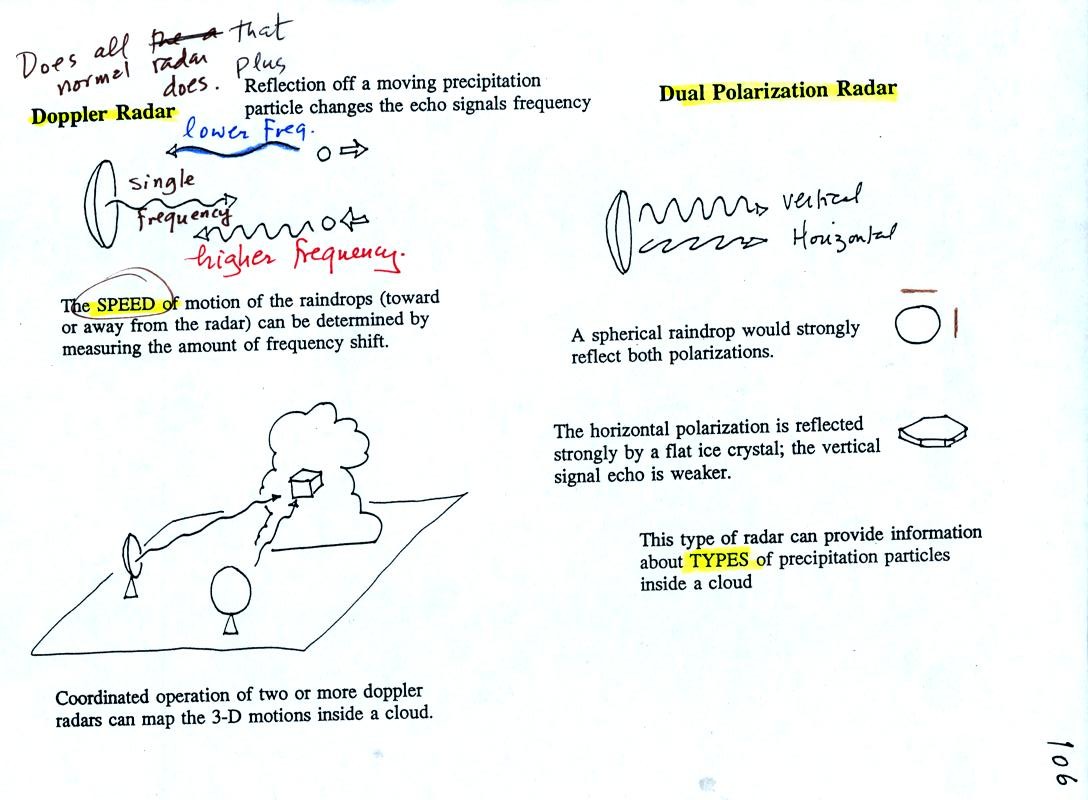 Does all that
normal radar plus
does.
Doppler Radar
Reflection off a moving precipitation
particle changes the echo signals frequency
lower Freq.
single
frequency
higher frequency.
The SPEED of motion of the raindrops (toward
or away from the radar) can be determined by
measuring the amount of frequency shift.
Coordinated operation of two or more doppler
radars can map the 3-D motions inside a cloud.
Dual Polarization Radar
vertical
Horizontal
A spherical raindrop would strongly
reflect both polarizations.
The horizontal polarization is reflected
strongly by a flat ice crystal; the vertical
signal echo is weaker.
This type of radar can provide information
about TYPES of precipitation particles
inside a cloud
106